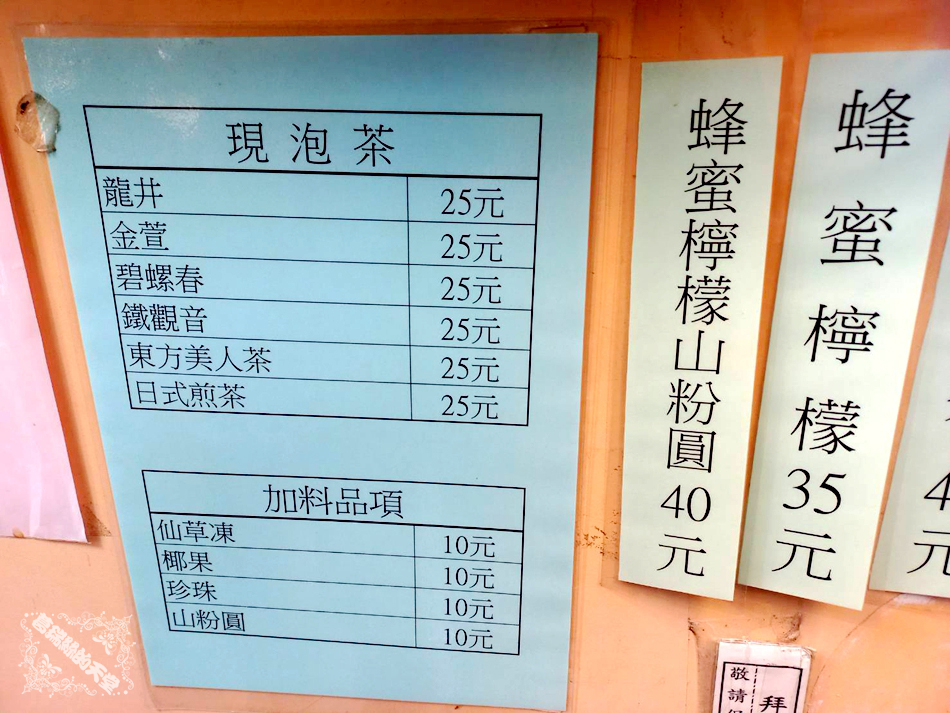 現泡茶
龍井 25元
金萱 25元
碧螺春 25元
鐵觀音 25元
東方美人茶 25元
日式煎茶 25元
加料品項
仙草凍 10元
椰果 10元
珍珠 10元
山粉圓 10元
蜂蜜檸檬山粉圓40元
蜂蜜檸檬35元
元
敬請
拜